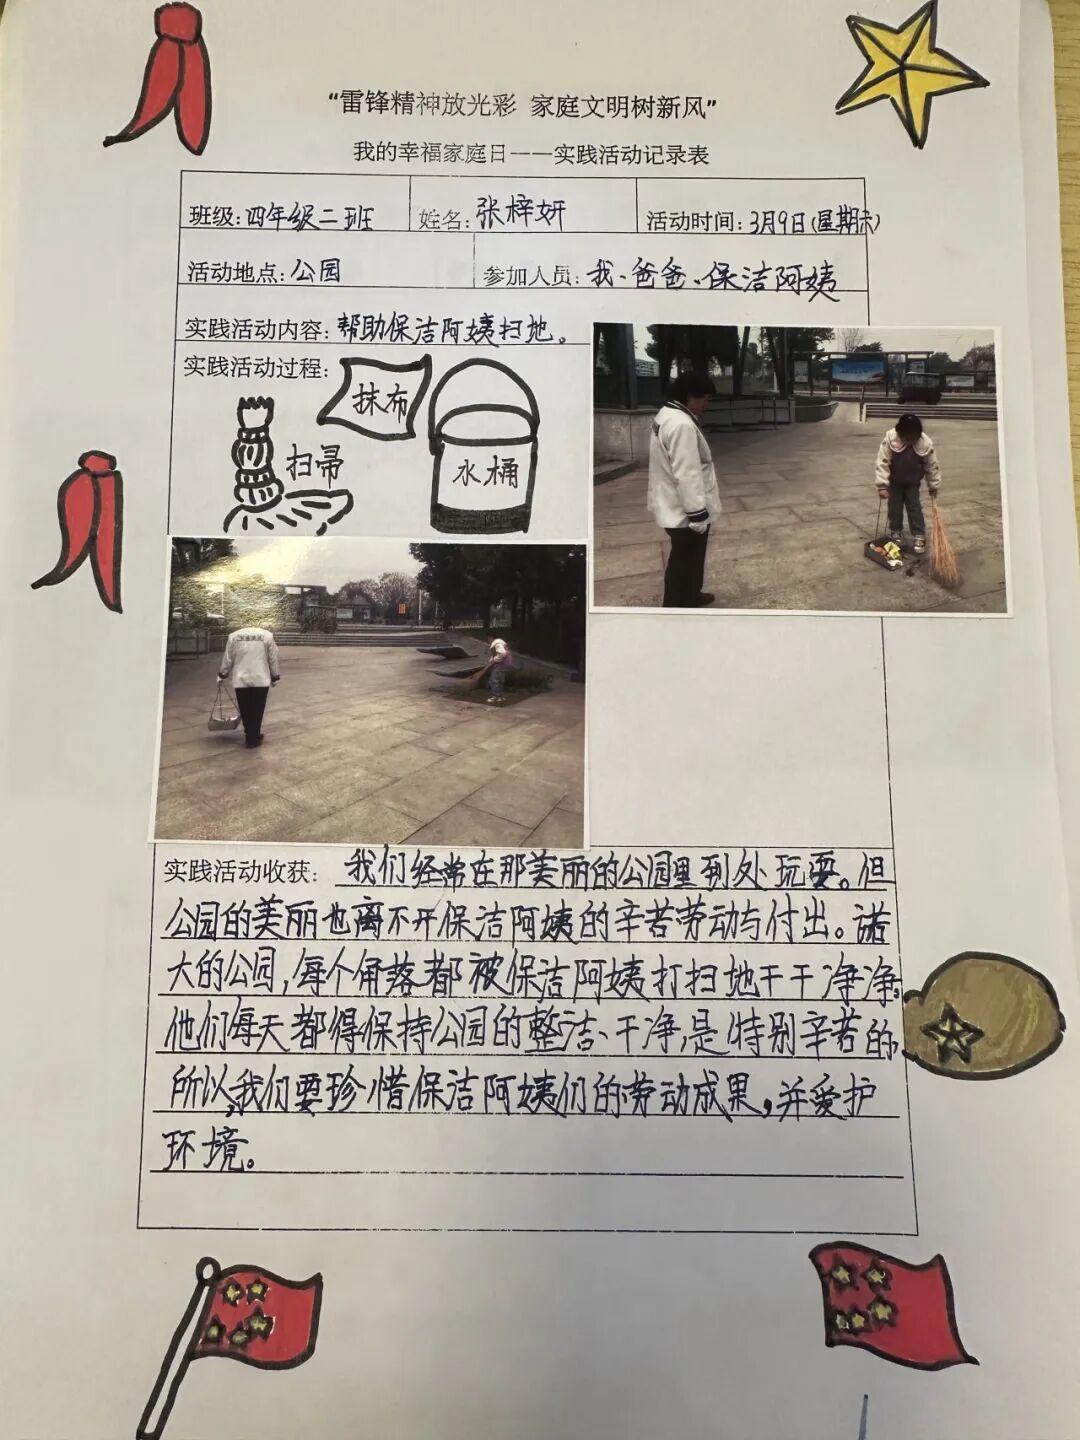 “雷锋精神放光彩 家庭文明树新风”
我的幸福家庭日----实践活动记录表
班级:四年级二班 姓名:张梓妍 活动时间:3月9日(星期六)
活动地点:公园 参加人员:我、爸爸、保洁阿姨
实践活动内容:帮助保洁阿姨扫地。
实践活动过程:
抹布
扫帚
水桶
实践活动收获: 我们经常在那美丽的公园里到处玩耍。但
公园的美丽也离不开保洁阿姨的辛苦劳动与付出。诺
大的公园,每个角落都被保洁阿姨打扫地干干净净。
他们每天都得保持公园的整洁、干净,是特别辛苦的,
所以,我们要珍惜保洁阿姨们的劳动成果,并爱护
环境。